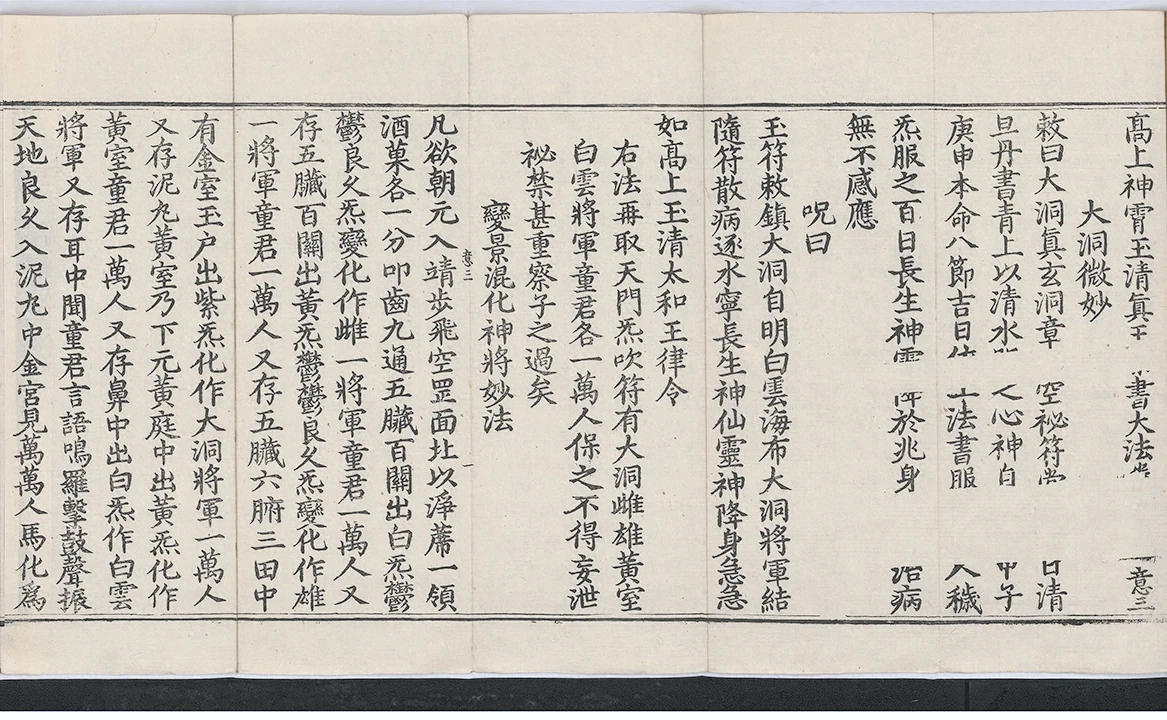 髙上神霄玉清眞王 書大法 意三
大洞微妙
敕曰大洞眞玄洞章 空祕符 日清
旦丹書青上以清水 心神自 甲子
庚申本命八節吉日 法書服 入穢
炁服之百日長生神 於兆身 治病
無不感應
呪曰
玉符敕鎮大洞自明白雲海布大洞將軍結
隨符散病逐水寧長生神仙靈神降身急急
如髙上玉清太和王律令
右法再取天門炁吹符有大洞雌雄黃室
白雲將軍童君各一萬人保之不得妄泄
祕禁甚重察子之過矣
變景混化神將妙法
意三 一
凡欲朝元入靖步飛空罡面北以淨蓆一領
酒菓各一分叩齒九通五臟百關出白炁鬱
鬱良久炁變化作雌一將軍童君一萬人又
存五臟百關出黃炁鬱鬱良久炁變化作雄
一將軍童君一萬人又存五臟六腑三田中
有金室玉户出紫炁化作大洞將軍一萬人
又存泥丸黃室乃下元黃庭中出黃炁化作
黃室童君一萬人又存鼻中出白炁作白雲
將軍又存耳中聞童君言語鳴羅擊鼓聲振
天地良久入泥丸中金宮見萬萬人馬化爲